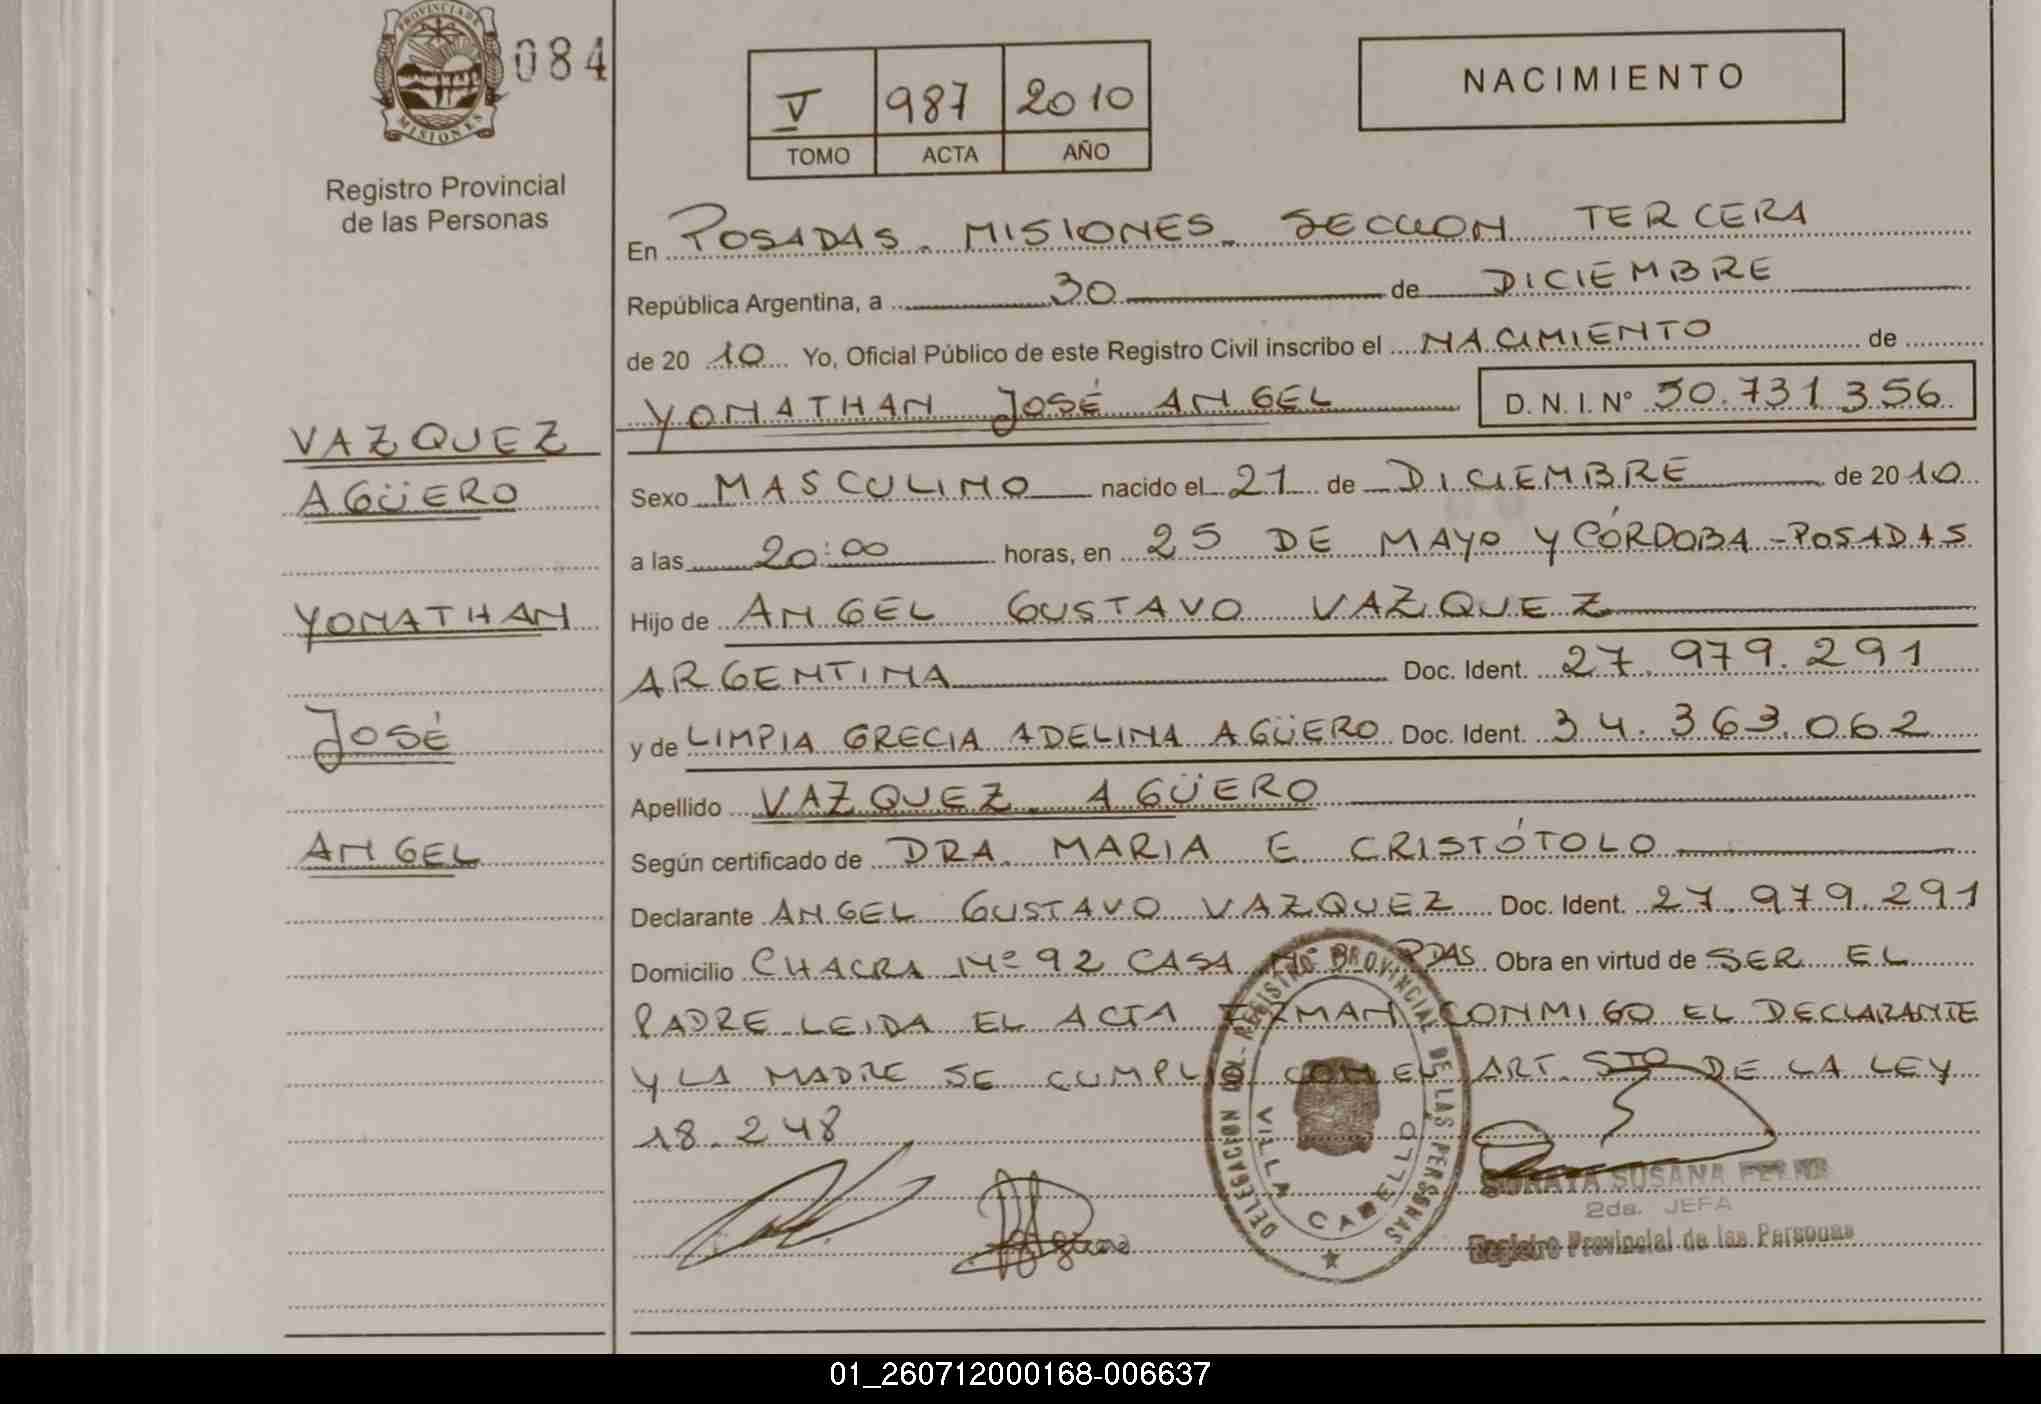 PROVINCIA DE
MISIONES
084
Registro Provincial
de las Personas
V 987 2010
TOMO ACTA AÑO
NACIMIENTO
En POSADAS. MISIONES. SECCION TERCERA
República Argentina, a 30 de DICIEMBRE
de 2010 Yo, Oficial Público de este Registro Civil inscribo el NACIMIENTO de
YONATHAN JOSÉ ANGEL D. N. I. N° 50.731.356
VAZQUEZ
AGÜERO
YONATHAN
JOSÉ
ANGEL
Sexo MASCULINO nacido el 21 de DICIEMBRE de 2010
a las 20:00 horas, en 25 DE MAYO Y CÓRDOBA - POSADAS
Hijo de ANGEL GUSTAVO VAZQUEZ
ARGENTINA Doc. Ident. 27.979.291
y de LIMPIA GRECIA ADELINA AGÜERO Doc. Ident. 34.363.062
Apellido VAZQUEZ AGÜERO
Según certificado de DRA. MARIA E CRISTÓTOLO
Declarante ANGEL GUSTAVO VAZQUEZ Doc. Ident. 27.979.291
Domicilio CHACRA Nº 92 CASA PDAS Obra en virtud de SER EL
PADRE LEIDA EL ACTA FIRMAN CONMIGO EL DECLARANTE
Y LA MADRE SE CUMPLIO CON EL ART. 5TO DE LA LEY
18.248
DELEGACION DEL REGISTRO PROVINCIAL DE LAS PERSONAS
VILLA CABELLO
SUSANA
2da. JEFA
Registro Provincial de las Personas
01_260712000168-006637